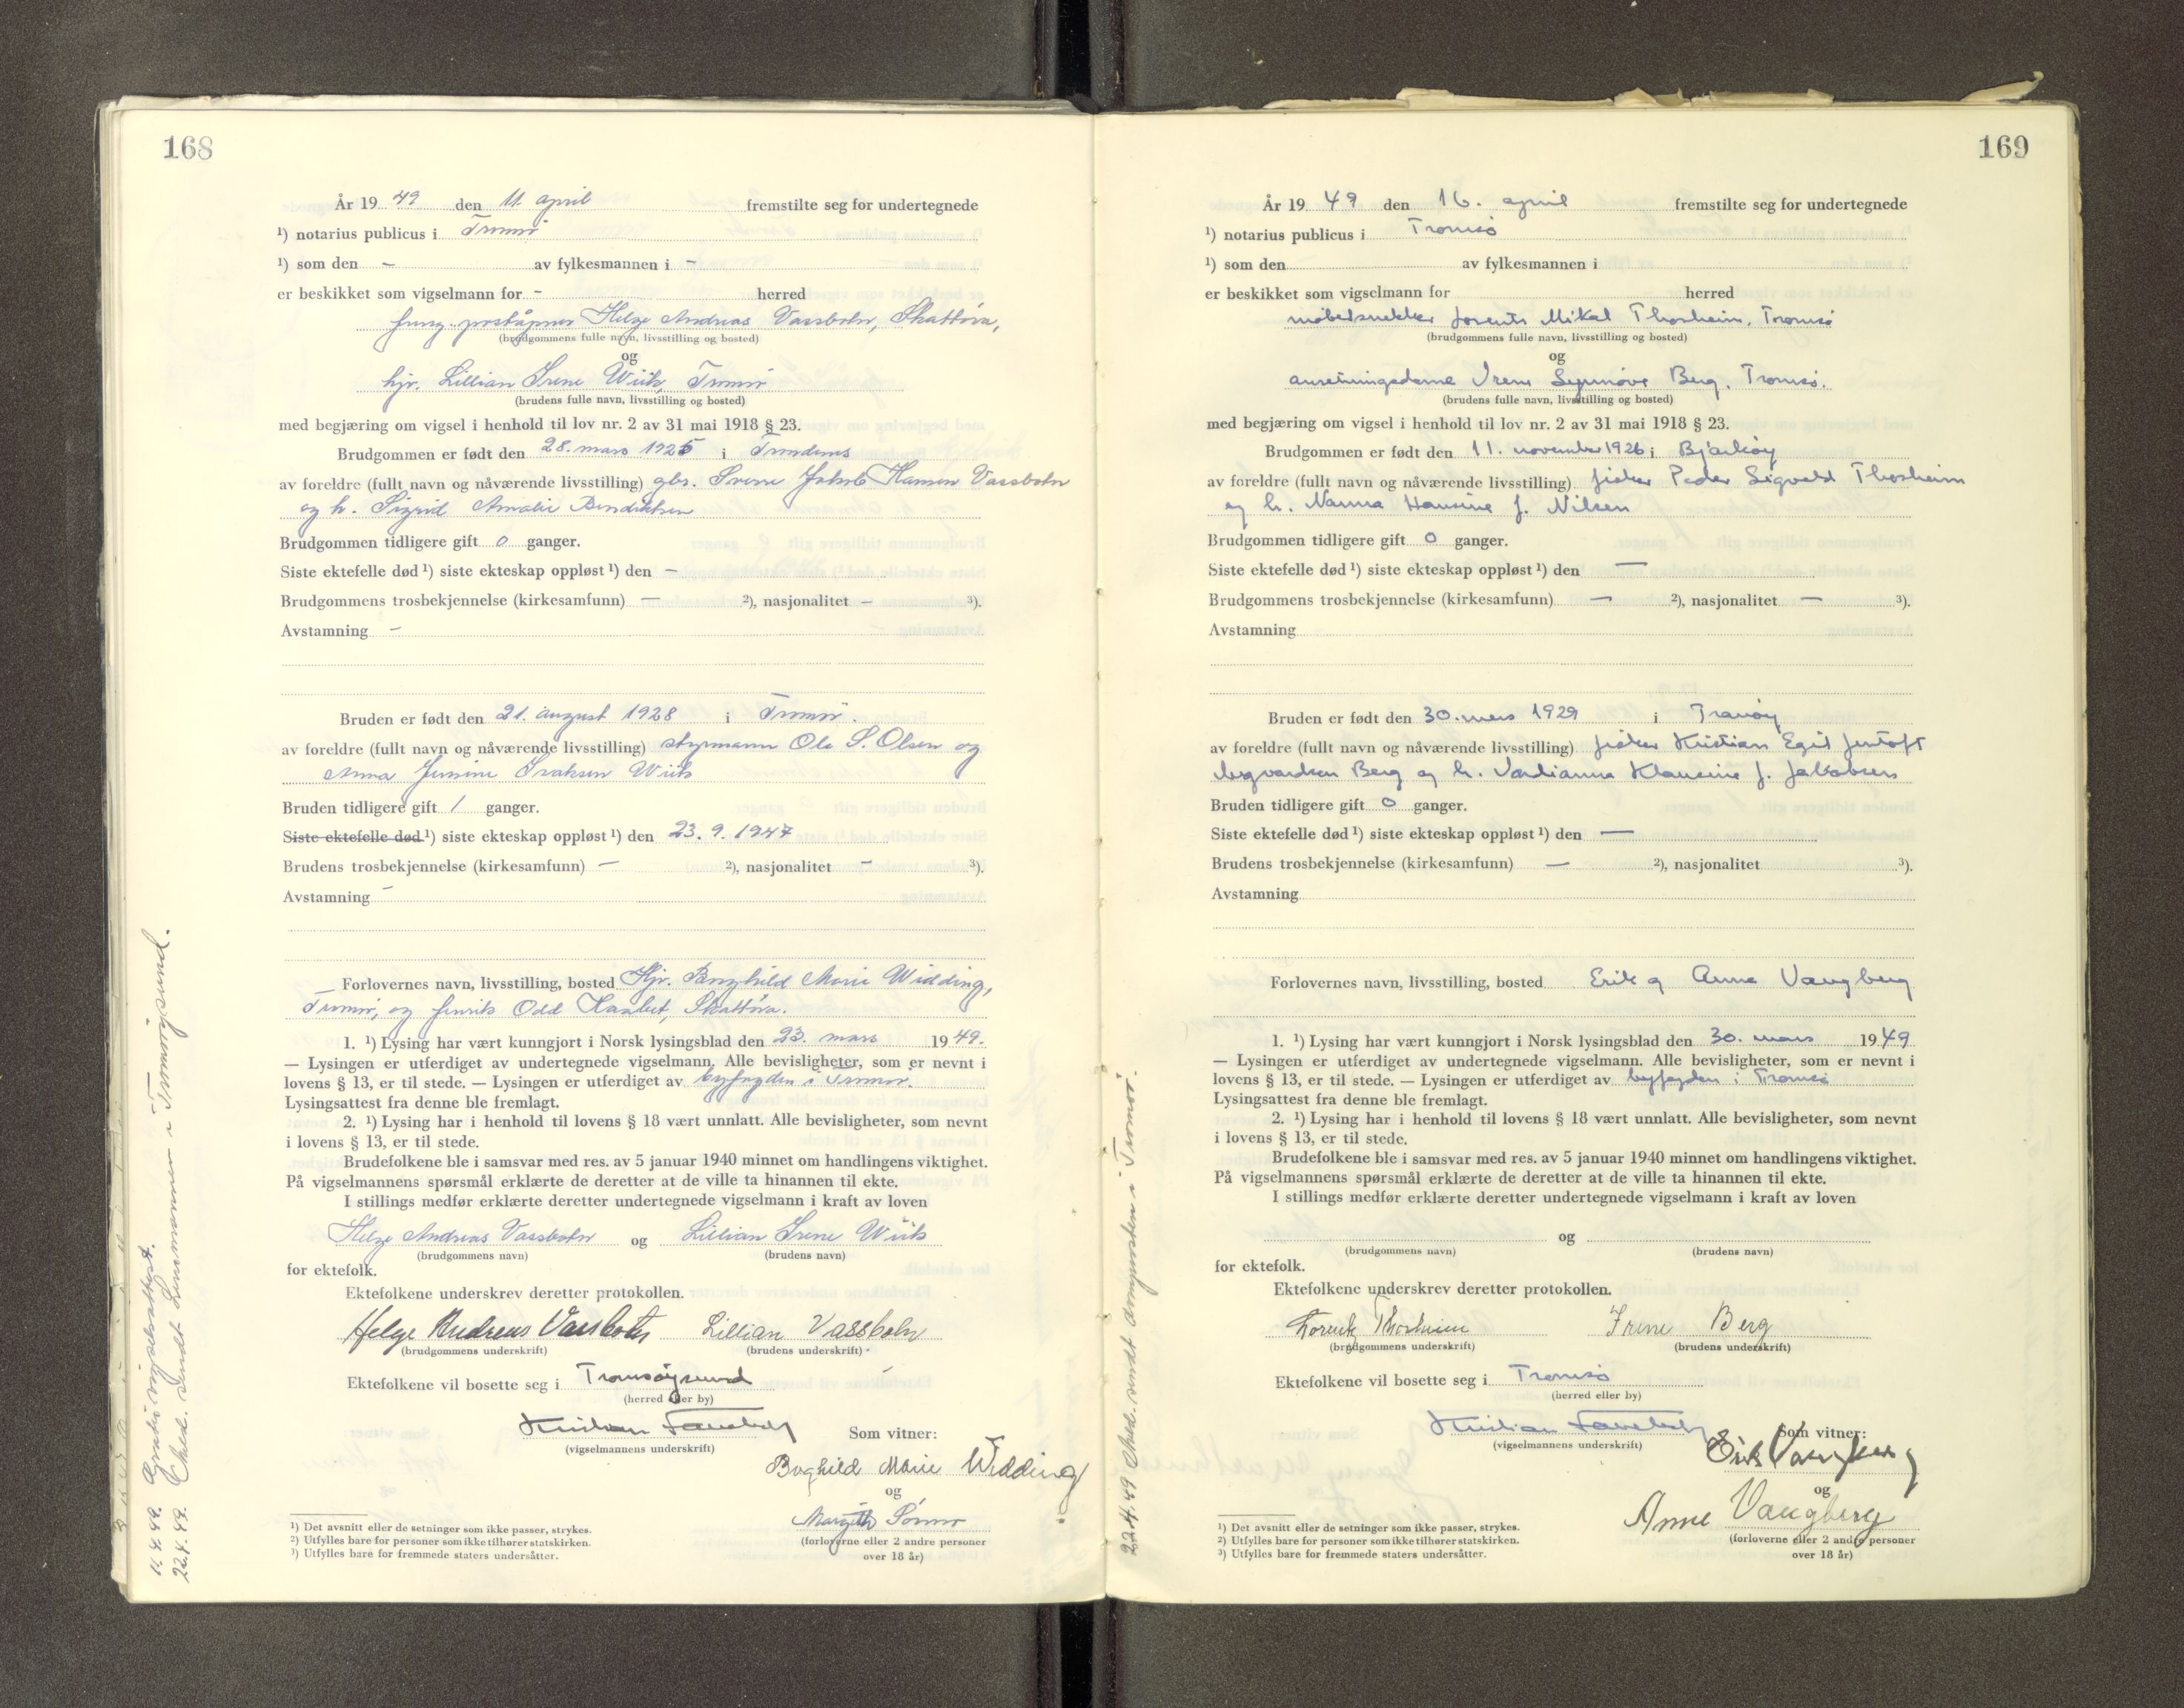 168
År 19 49 den 11. april fremstilte seg for undertegnede
¹) notarius publicus i Tromsø
¹) som den – av fylkesmannen i –
er beskikket som vigselmann for – herred
fung. poståpner Helge Andreas Vassbotn, Skattøra,
(brudgommens fulle navn, livsstilling og bosted)
og
hjv. Lillian Irene Wiik, Tromsø
(brudens fulle navn, livsstilling og bosted)
med begjæring om vigsel i henhold til lov nr. 2 av 31 mai 1918 § 23.
Brudgommen er født den 28. mars 1925 i Trondenes
av foreldre (fullt navn og nåværende livsstilling) gbr. Sverre Jakob Hansen Vassbotn
og h. Sigrid Amalie Bendiktsen
Brudgommen tidligere gift 0 ganger.
Siste ektefelle død ¹) siste ekteskap oppløst ¹) den –
Brudgommens trosbekjennelse (kirkesamfunn) – ²), nasjonalitet – ³).
Avstamning –
Bruden er født den 21. august 1928 i Tromsø.
av foreldre (fullt navn og nåværende livsstilling) styrmann Ole S. Olsen og
Anna Jensine Isaksen Wiik
Bruden tidligere gift 1 ganger.
Siste ektefelle død ¹) siste ekteskap oppløst ¹) den 23. 9. 1947
Brudens trosbekjennelse (kirkesamfunn) – ²), nasjonalitet – ³).
Avstamning –
Forlovernes navn, livsstilling, bosted Hjv. Borghild Marie Widding,
Tromsø, og Odd Skattøra.
1. ¹) Lysing har vært kunngjort i Norsk lysingsblad den 23. mars 19 49.
— Lysingen er utferdiget av undertegnede vigselmann. Alle bevisligheter, som er nevnt i
lovens § 13, er til stede. — Lysingen er utferdiget av byfogden i Tromsø.
Lysingsattest fra denne ble fremlagt.
2. ¹) Lysing har i henhold til lovens § 18 vært unnlatt. Alle bevisligheter, som nevnt
i lovens § 13, er til stede.
Brudefolkene ble i samsvar med res. av 5 januar 1940 minnet om handlingens viktighet.
På vigselmannens spørsmål erklærte de deretter at de ville ta hinannen til ekte.
I stillings medfør erklærte deretter undertegnede vigselmann i kraft av loven
Helge Andreas Vassbotn og Lillian Irene Wiik
(brudgommens navn) (brudens navn)
for ektefolk.
Ektefolkene underskrev deretter protokollen.
Helge Andreas Vassbotn Lillian Vassbotn
(brudgommens underskrift) (brudens underskrift)
Ektefolkene vil bosette seg i Tromsøysund
(herred eller by)
Som vitner:
(vigselmannens underskrift)
Boghild Marie Widding
og
(forloverne eller 2 andre personer
over 18 år)
¹) Det avsnitt eller de setninger som ikke passer, strykes.
²) Utfylles bare for personer som ikke tilhører statskirken.
³) Utfylles bare for fremmede staters undersåtter.
11.4.49. vigselsattest.
22.4.49. Med. sendt Lensmannen i Tromsøysund.
169
År 19 49 den 16. april fremstilte seg for undertegnede
¹) notarius publicus i Tromsø
¹) som den av fylkesmannen i
er beskikket som vigselmann for herred
møbelsnekker Lorents Mikal Thorheim, Tromsø
(brudgommens fulle navn, livsstilling og bosted)
og
anretningsdame Irene Synnøve Berg, Tromsø.
(brudens fulle navn, livsstilling og bosted)
med begjæring om vigsel i henhold til lov nr. 2 av 31 mai 1918 § 23.
Brudgommen er født den 11. november 1926 i Bjarkøy
av foreldre (fullt navn og nåværende livsstilling) fisker Peder Sigvald Thorheim
og h. Nanna Hansine f. Nilsen
Brudgommen tidligere gift 0 ganger.
Siste ektefelle død ¹) siste ekteskap oppløst ¹) den —
Brudgommens trosbekjennelse (kirkesamfunn) — ²), nasjonalitet — ³).
Avstamning
Bruden er født den 30. mars 1929 i Tranøy
av foreldre (fullt navn og nåværende livsstilling) fisker Kristian Egil Jentoft
Berg og h. Klausine f. Jakobsen
Bruden tidligere gift 0 ganger.
Siste ektefelle død ¹) siste ekteskap oppløst ¹) den —
Brudens trosbekjennelse (kirkesamfunn) — ²), nasjonalitet ³).
Avstamning
Forlovernes navn, livsstilling, bosted Erik og Anne Vangberg
1. ¹) Lysing har vært kunngjort i Norsk lysingsblad den 30. mars 19 49
— Lysingen er utferdiget av undertegnede vigselmann. Alle bevisligheter, som er nevnt i
lovens § 13, er til stede. — Lysingen er utferdiget av byfogden i Tromsø
Lysingsattest fra denne ble fremlagt.
2. ¹) Lysing har i henhold til lovens § 18 vært unnlatt. Alle bevisligheter, som nevnt
i lovens § 13, er til stede.
Brudefolkene ble i samsvar med res. av 5 januar 1940 minnet om handlingens viktighet.
På vigselmannens spørsmål erklærte de deretter at de ville ta hinannen til ekte.
I stillings medfør erklærte deretter undertegnede vigselmann i kraft av loven
og
(brudgommens navn) (brudens navn)
for ektefolk.
Ektefolkene underskrev deretter protokollen.
Lorentz Thorheim Irene Berg
(brudgommens underskrift) (brudens underskrift)
Ektefolkene vil bosette seg i Tromsø
(herred eller by)
Som vitner:
(vigselmannens underskrift)
Erik Vangberg
og
Anne Vangberg
(forloverne eller 2 andre personer
over 18 år)
¹) Det avsnitt eller de setninger som ikke passer, strykes.
²) Utfylles bare for personer som ikke tilhører statskirken.
³) Utfylles bare for fremmede staters undersåtter.
22.4.49 Med. sendt i Tromsø.